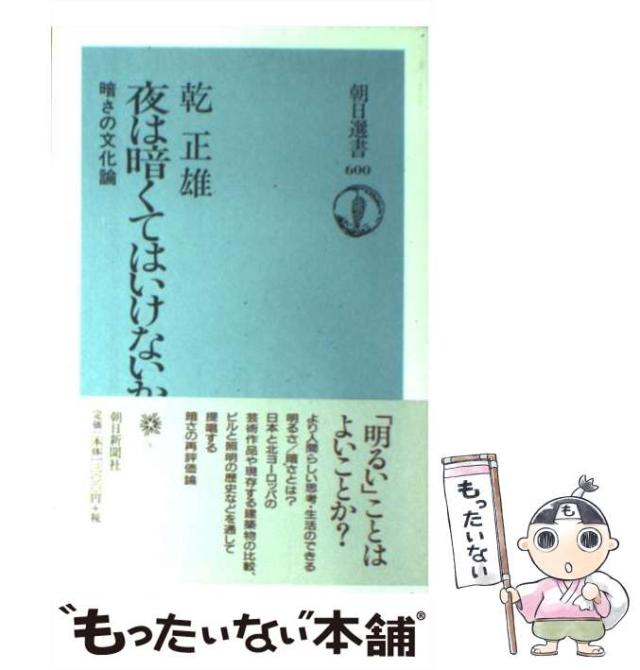 朝日選書
600
乾 正雄
夜は暗くてはいけないか
暗さの文化論
「明るい」ことは
よいことか?
より人間らしい思考・生活のできる
明るさ/暗さとは?
日本と北ヨーロッパの
芸術作品や現存する建築物の比較、
ビルと照明の歴史などを通して
提唱する
暗さの再評価論
朝日新聞社
も
もったいない
"もったいない"本舗®